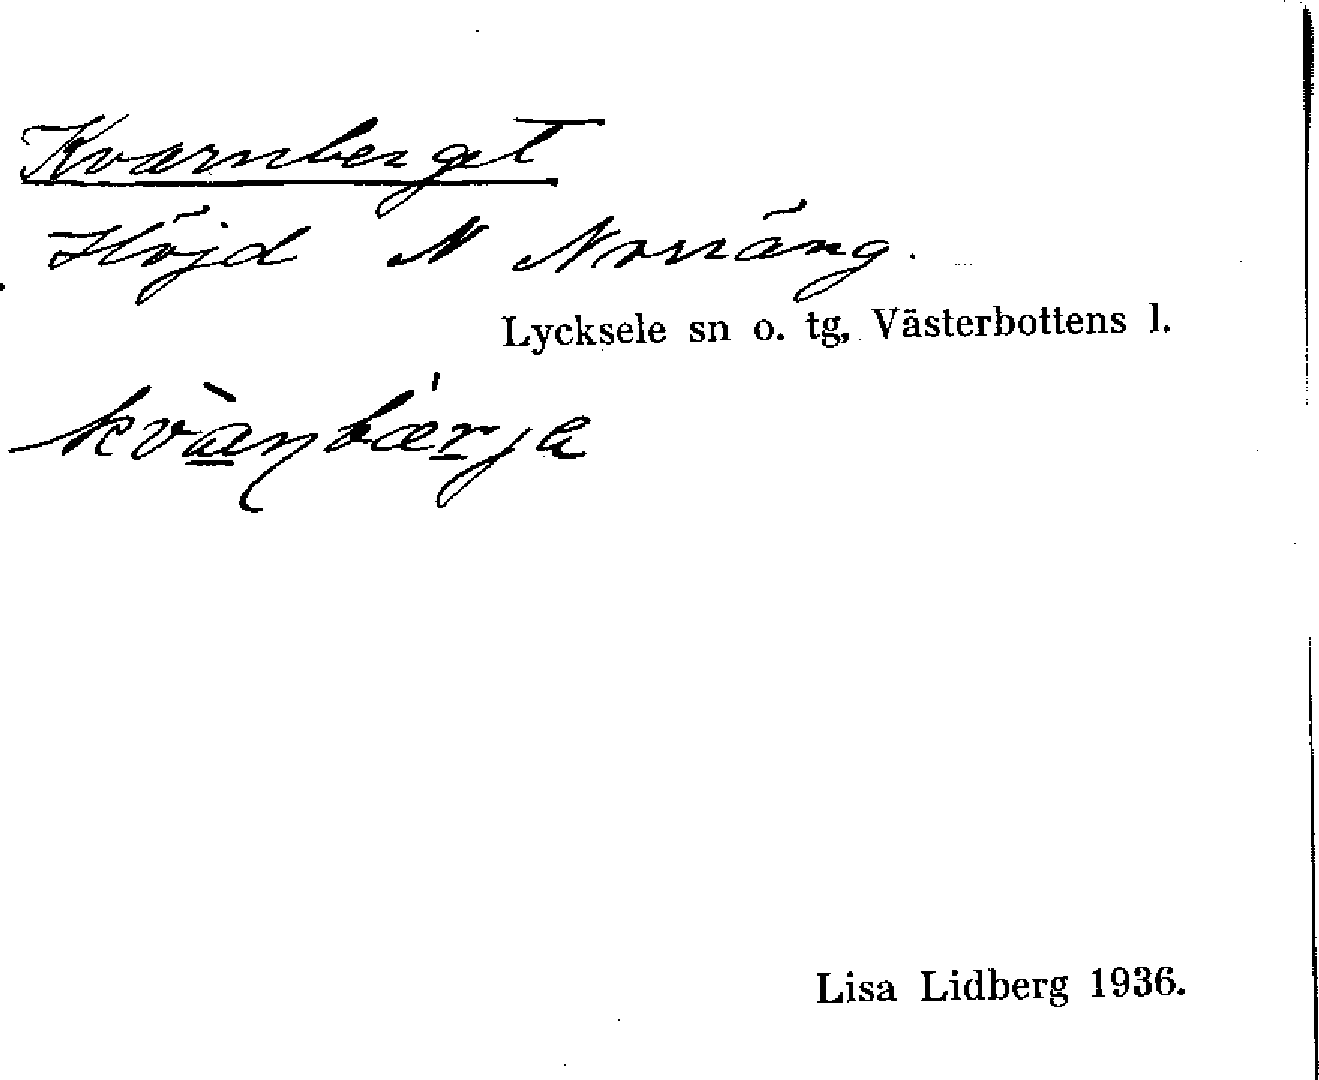 Kvarnberget
Höjd N Norräng.
Lycksele sn o. tg, Västerbottens l.
kvàṉbæ̀rja
Lisa Lidberg 1936.